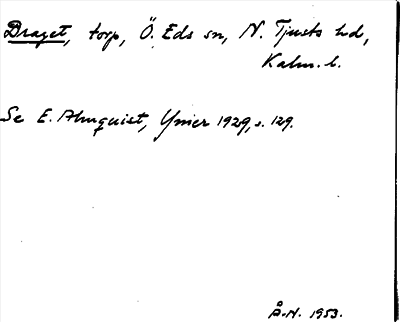 Draget, torp, Ö. Eds sn, N. Tjusts hd,
Kalm. l.
Se E. Almquist, Ymer 1929, s. 129.
Å.N. 1953.